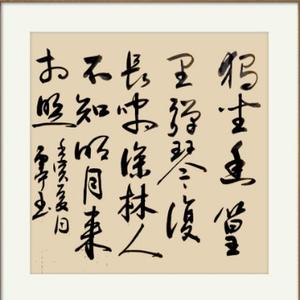 獨坐幽篁
里彈琴復
長嘯深林人
不知明月来
相照
夏日